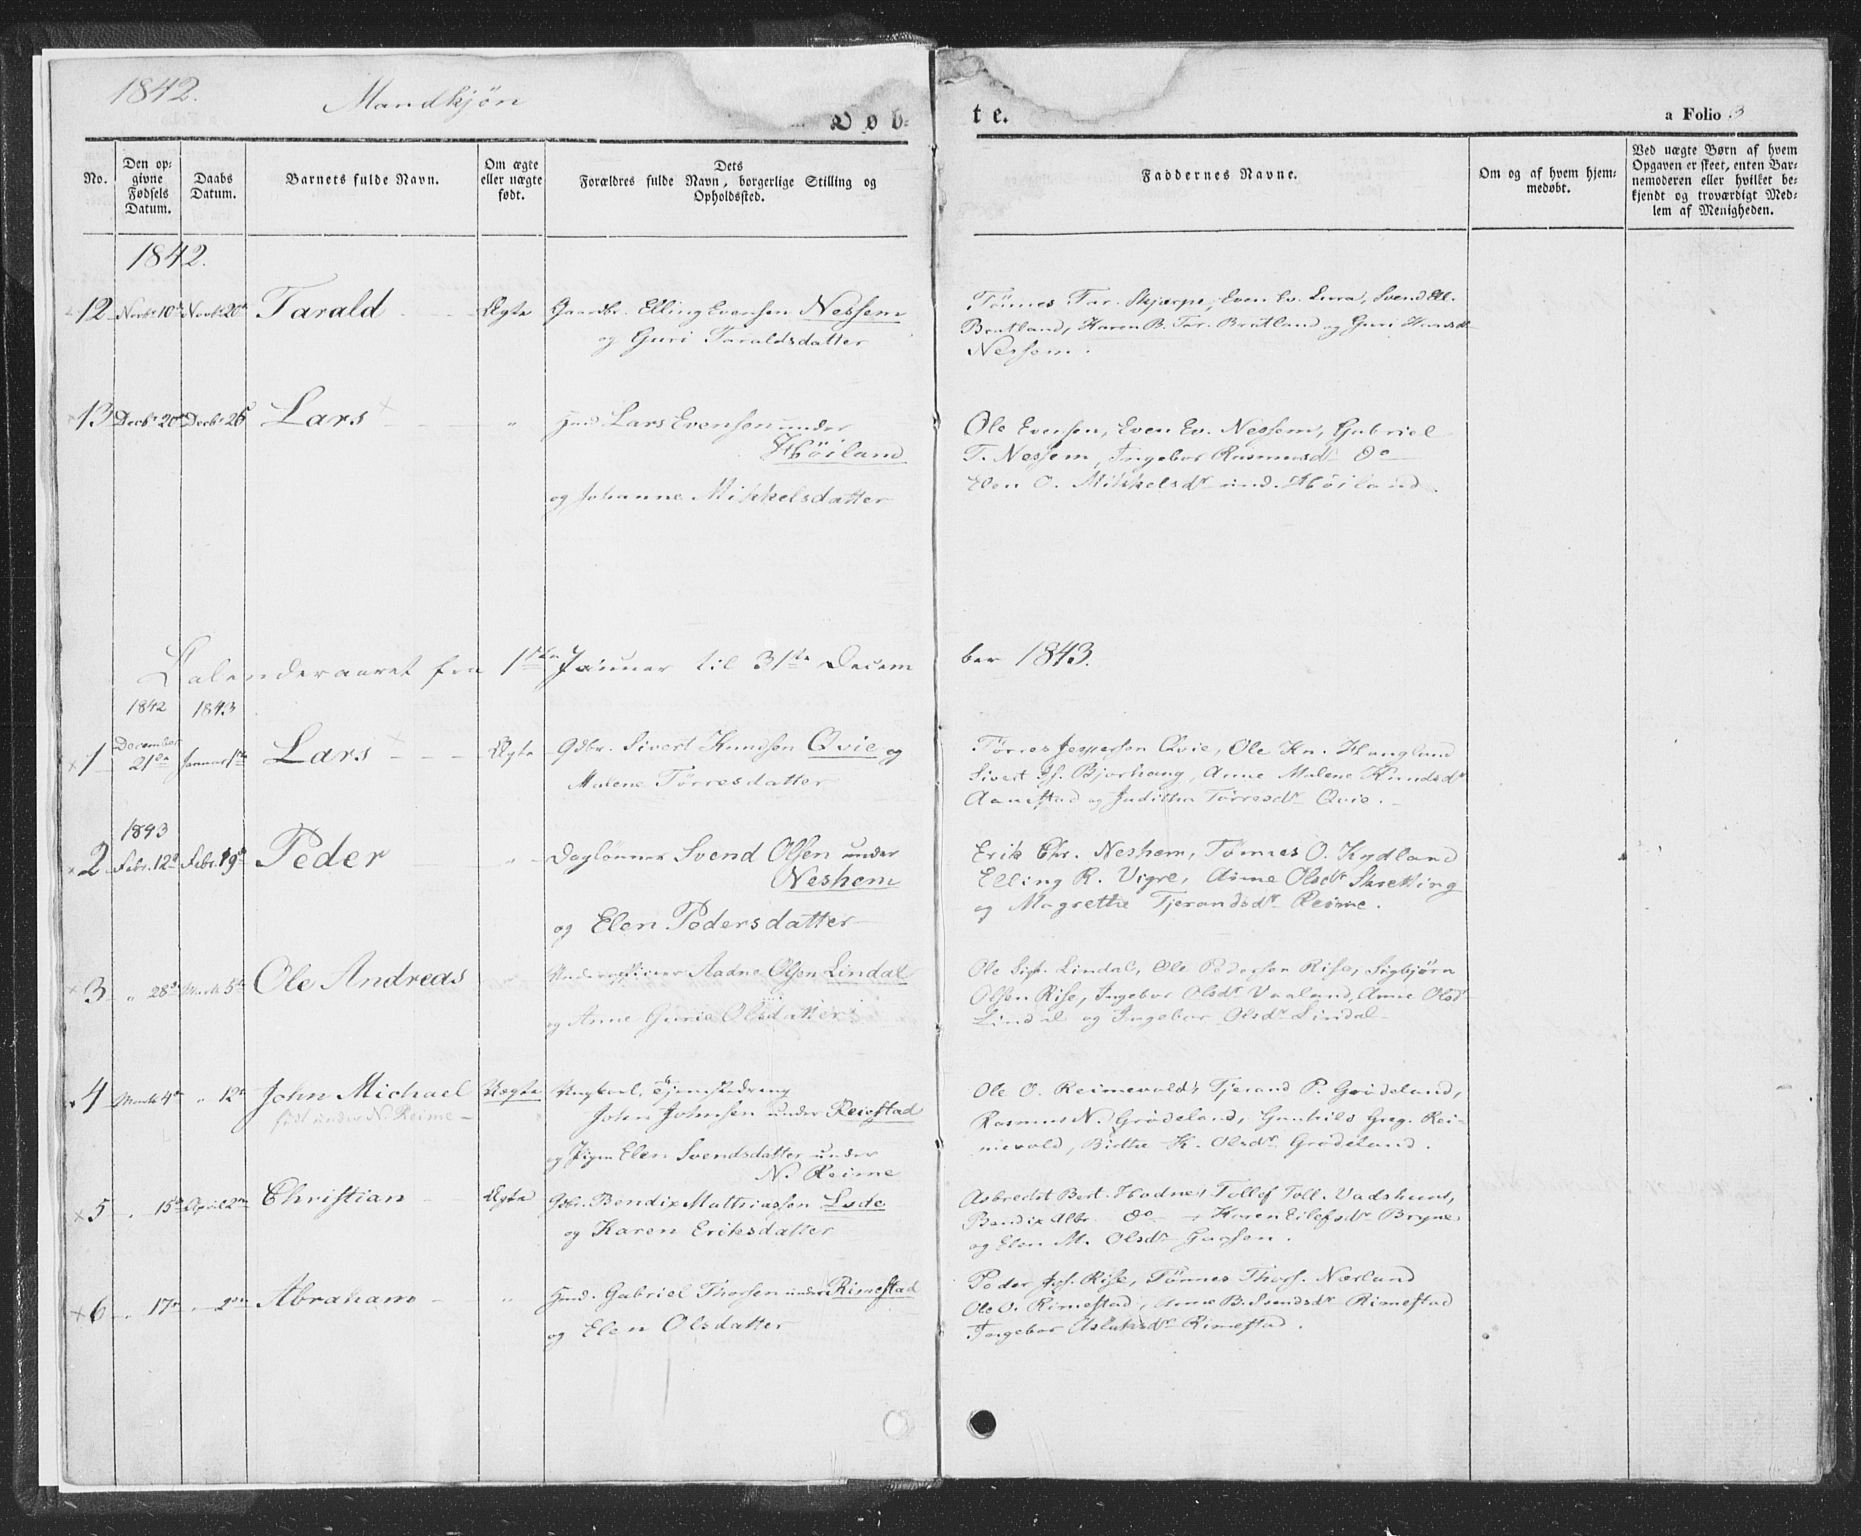 1842.
Mandkjøn
Døb-
te.
a Folio 3
No.
Den op-
givne
Fødsels
Datum.
Daabs
Datum.
Barnets fulde Navn.
Om ægte
eller uægte
født.
Dets
Forældres fulde Navn, borgerlige Stilling og
Opholdssted.
Faddernes Navne.
Om og af hvem hjem-
medøbt.
Ved uægte Børn af hvem
Opgaven er skeet, enten Bar-
nemoderen eller hvilket be-
kjendt og troværdigt Med-
lem af Menigheden.
1842.
12 Novbr 10de Novbr 20de Tarald Ægte Gaardbr. Elling Evensen Nessem
og Guri Taraldsdatter
Tønnes Tar. Skjærpe, Even Ev. Lura, Svend Ell.
Brutland, Karen B. Tar. Brutland og Guri
Nessem.
13 Decbr 20de Decbr 26 Lars " Huusmd. Lars Evensen under
Høiland
og Johanne Mikkelsdatter
Ole Evensen, Even Ev. Nessem, Gabriel
T. Nessem, Ingebor Rasmusdr do
Elen O. Mikkelsdr und. Høiland.
Kalenderaaret fra 1ste Januar til 31te Decem
ber 1843.
1842 1843
1 December 21de Januar 1ste Lars Ægte Gdbr. Sivert Knudsen Qvie og
Malene Tørresdatter
Tørres Jespersen Qvie, Ole Kn. Haugland
Sivert Bjorhaug, Anne Malene Knudsdr
Aanestad og Juditha Tørresdr Qvie.
1843
2 Febr. 12te Febr. 19de Peder " Daglønner Svend Olsen under
Neshem
og Elen Pedersdatter
Erik Chr. Neshem, Tønnes O. Kydland
Elling R. Vigre, Anne Olsdr Skretting
og Magrethe Tjerandsdr Reime.
3 " 28de Marts 5te Ole Andreas Underofficier Aadne Olsen Lindal
og Anne Gurie Olsdatter
Ole Sigb. Lindal, Ole Pedersen Rise, Sigbjørn
Olsen Rise, Ingebor Olsdr Vaaland, Anne Olsdr
Lindal og Ingebor Olsdr Lindal
4 Marts 4de " 12te John Michael Uægte Ungkarl, Tjenestedreng
født under N. Reime
John Johnsen under Reiestad
og Pigen Elen Svendsdatter under
N. Reime
Ole O. Reimevold, Tjerand P. Grødeland,
Rasmus N. Grødeland, Gunhild Greg. Rei-
mevold, Birthe K. Olsdr Grødeland.
5 " 15de April 2den Christian Ægte Gbr. Bendix Mathiassen Lode
og Karen Eriksdatter
Asbrecht Bert. Hodne, Tollef Toll. Vadshuus,
Bendix Albr. do Karen Eilefsdr Bryne
og Elen M. Olsdr
6 " 17de " 2den Abraham " Huusmd. Gabriel Thorsen under Rimestad
og Elen Olsdatter
Peder Jos. Rise, Tønnes Thors. Nærland
Ole O. Rimestad, Anne B. Svendsdr Rimestad
Ingebor Aslaksdr Rimestad.